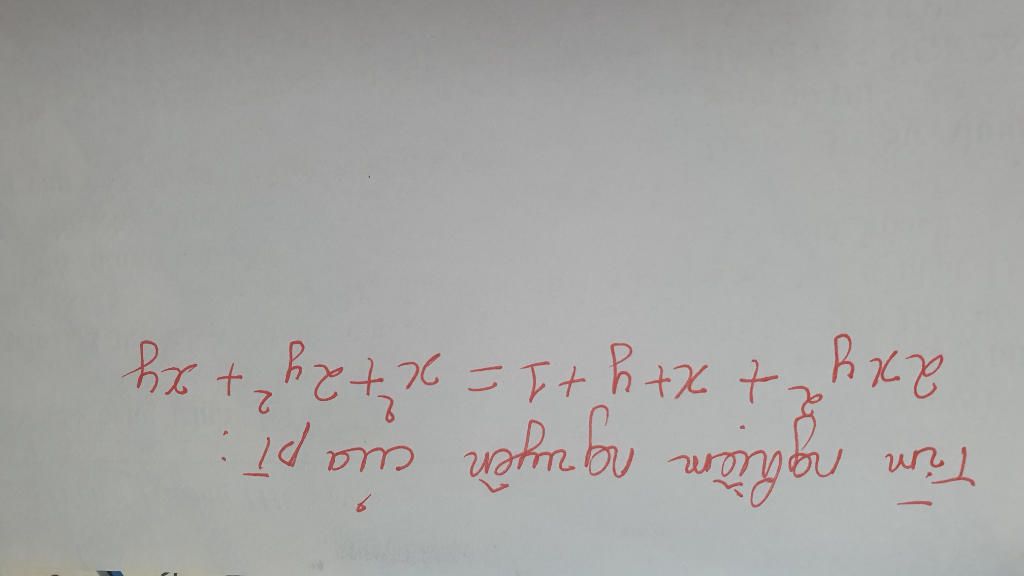 Tìm nghiệm nguyên của pT:
2xy² + x + y + 1 = x² + 2y² + xy